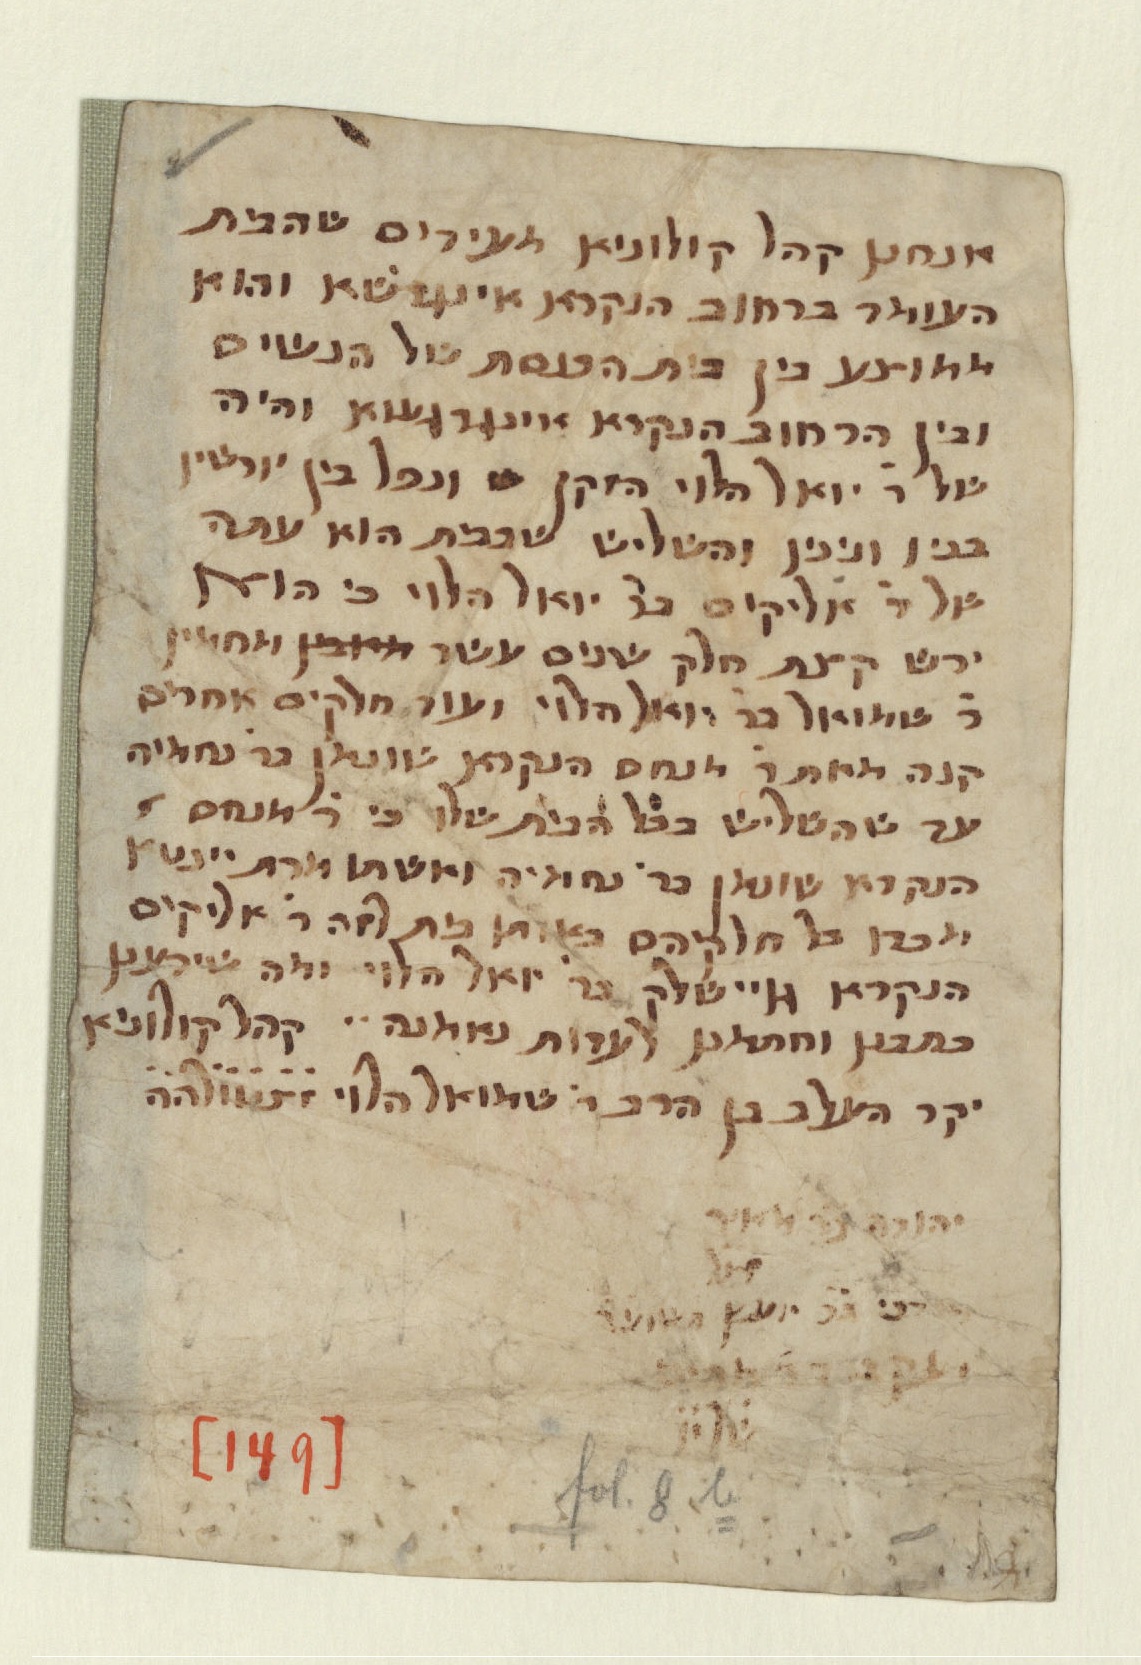 אנחנו קהל קולוניא מעידים שהבית
העומד ברחוב הנקרא והוא
ממוצע בין בית הכנסת של הנשים
ובין הרחוב הנקרא אינגרגשא והיה
של ר' יואל הלוי הזקן ונפל בין יורשין
בניו ונינין והשליש שבבית הוא עתה
של ר' אליקים בר' יואל הלוי כי הוא
ירש קצת חלק שנים עשר מחמין
ר' שמואל בר' יואל הלוי ועוד חלקים אחרים
קנה מאת ר' מנחם הנקרא שונמן בר' נחמיה
עד שהשליש בכל הבית שלו כי ר' מנחם
הנקרא שונמן בר' נחמיה ואשתו מרת
מכרו כל חלקיהם באותו בית לזה ר' אליקים
הנקרא גוישלק בר' יואל הלוי ומה שידענו
כתבנו וחתמנו לעדות נאמנה קהל קולוניא
יקר העלוב בן הרב ר' שמואל הלוי
יהודה בר' מאיר
[149]
fol. 8 b